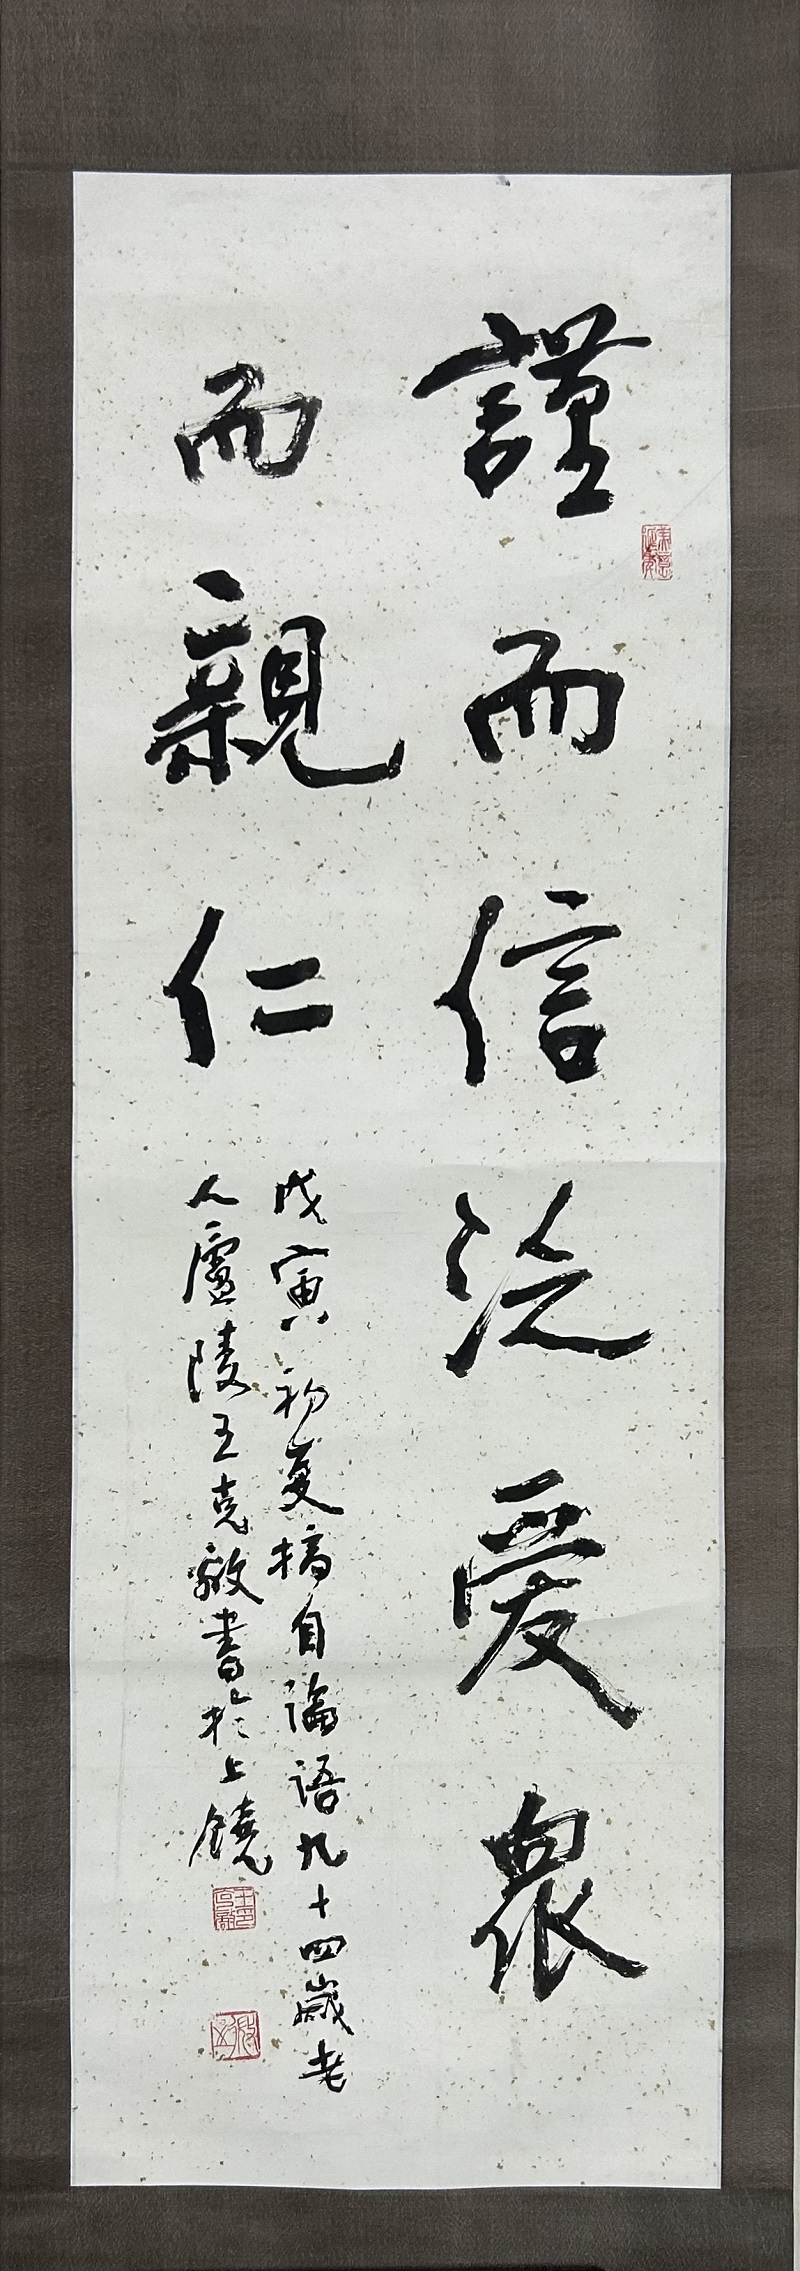 謹而信泛愛衆
而親仁
戊寅初夏摘自論語九十四歲老
人廬陵王克敵書於上饒